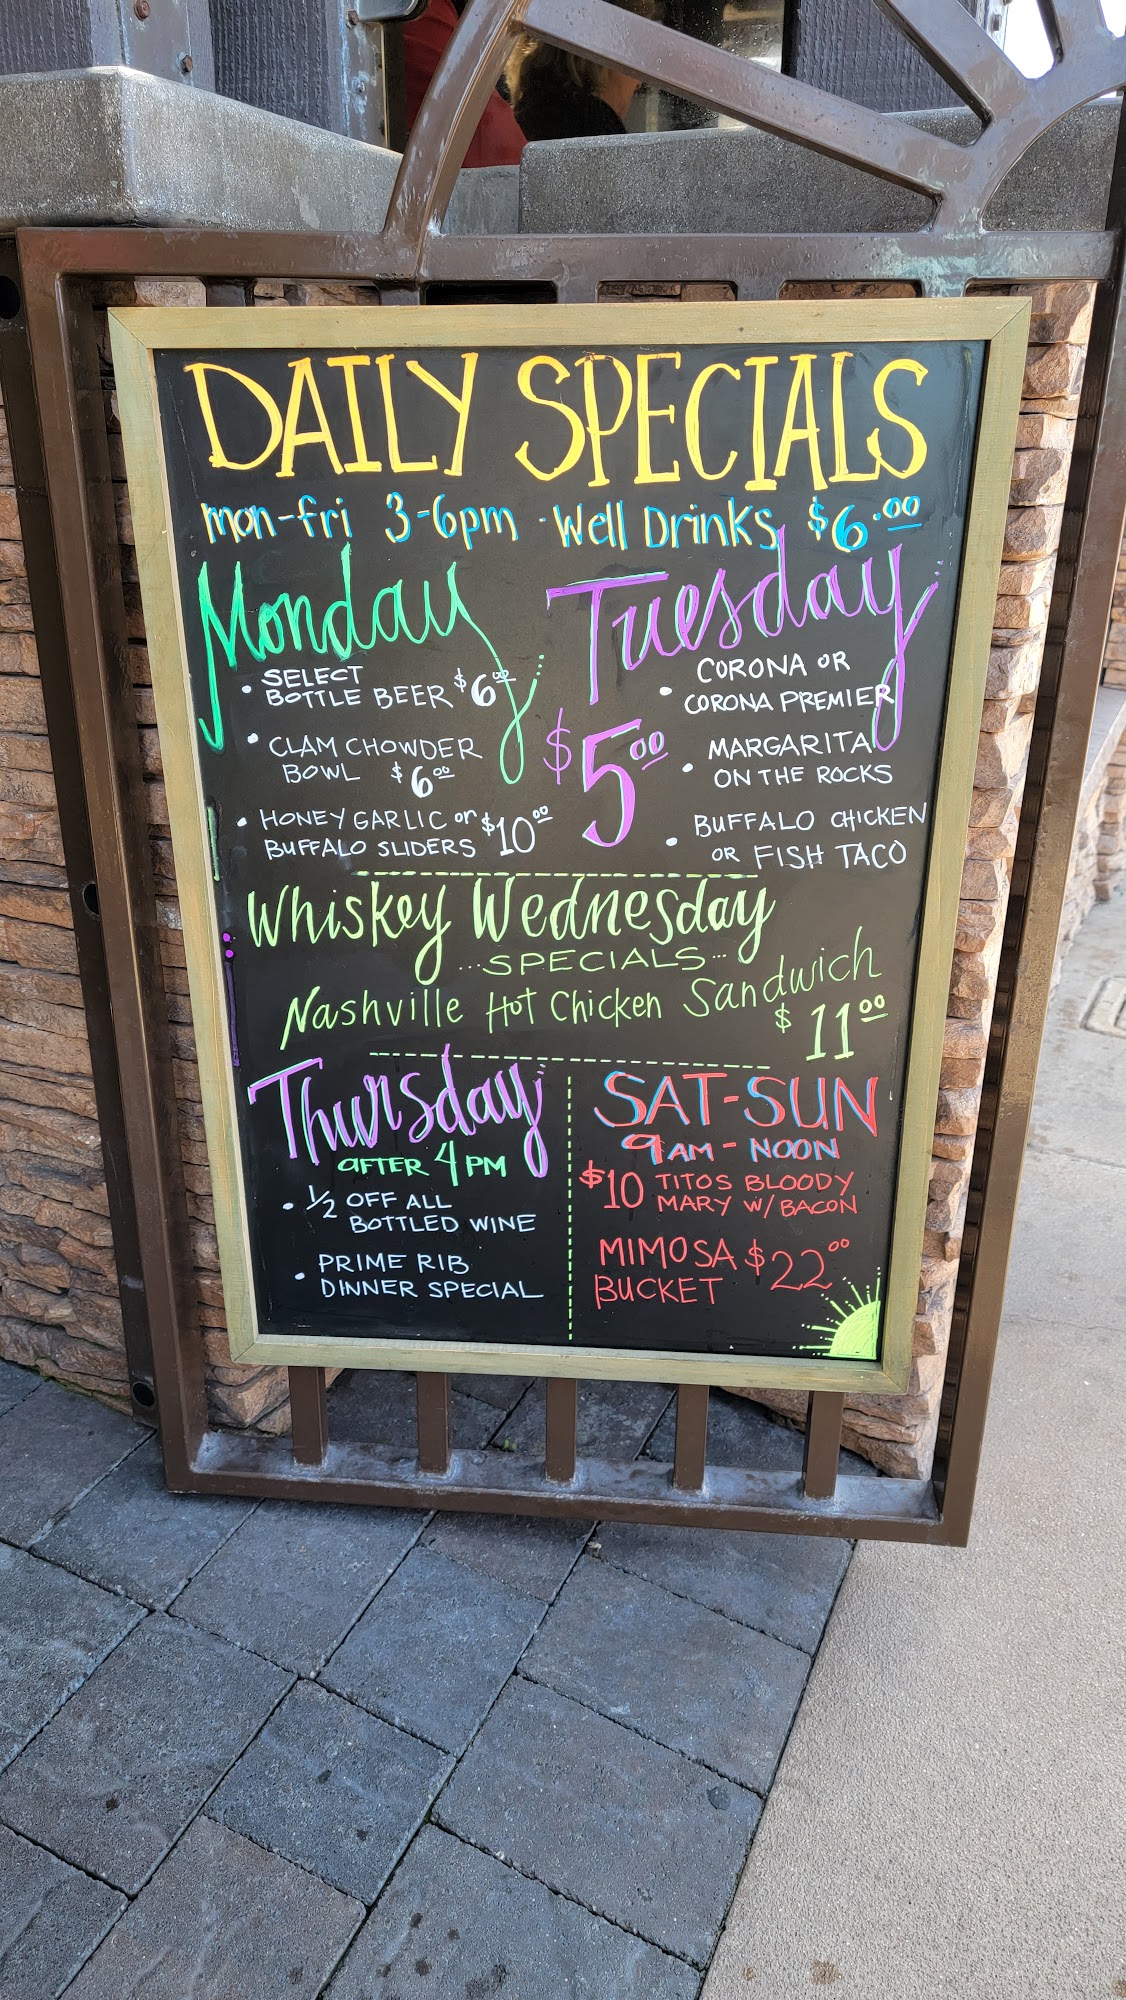 DAILY SPECIALS
mon-fri 3-6pm · Well Drinks $6.00
Monday
• SELECT
BOTTLE BEER $6.00
• CLAM CHOWDER
BOWL $6.00
• HONEY GARLIC or
BUFFALO SLIDERS $10.00
Tuesday
$5.00
• CORONA OR
CORONA PREMIER
• MARGARITA
ON THE ROCKS
• BUFFALO CHICKEN
OR FISH TACO
Whiskey Wednesday
...SPECIALS...
Nashville Hot Chicken Sandwich
$11.00
Thursday
AFTER 4PM
• 1/2 OFF ALL
BOTTLED WINE
• PRIME RIB
DINNER SPECIAL
SAT-SUN
9AM - NOON
$10 TITOS BLOODY
MARY W/ BACON
MIMOSA $22.00
BUCKET